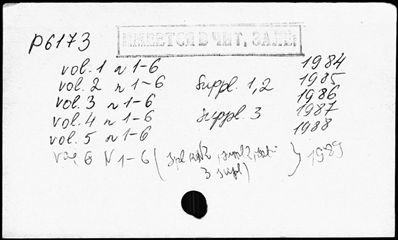 P6173
vol. 1 n 1-6 1984
vol. 2 n 1-6 Suppl. 1,2 1985
vol. 3 n 1-6 1986
vol. 4 n 1-6 suppl. 3 1987
vol. 5 n 1-6 1988
vol 6 N 1-6 ( 1989
3 suppl)